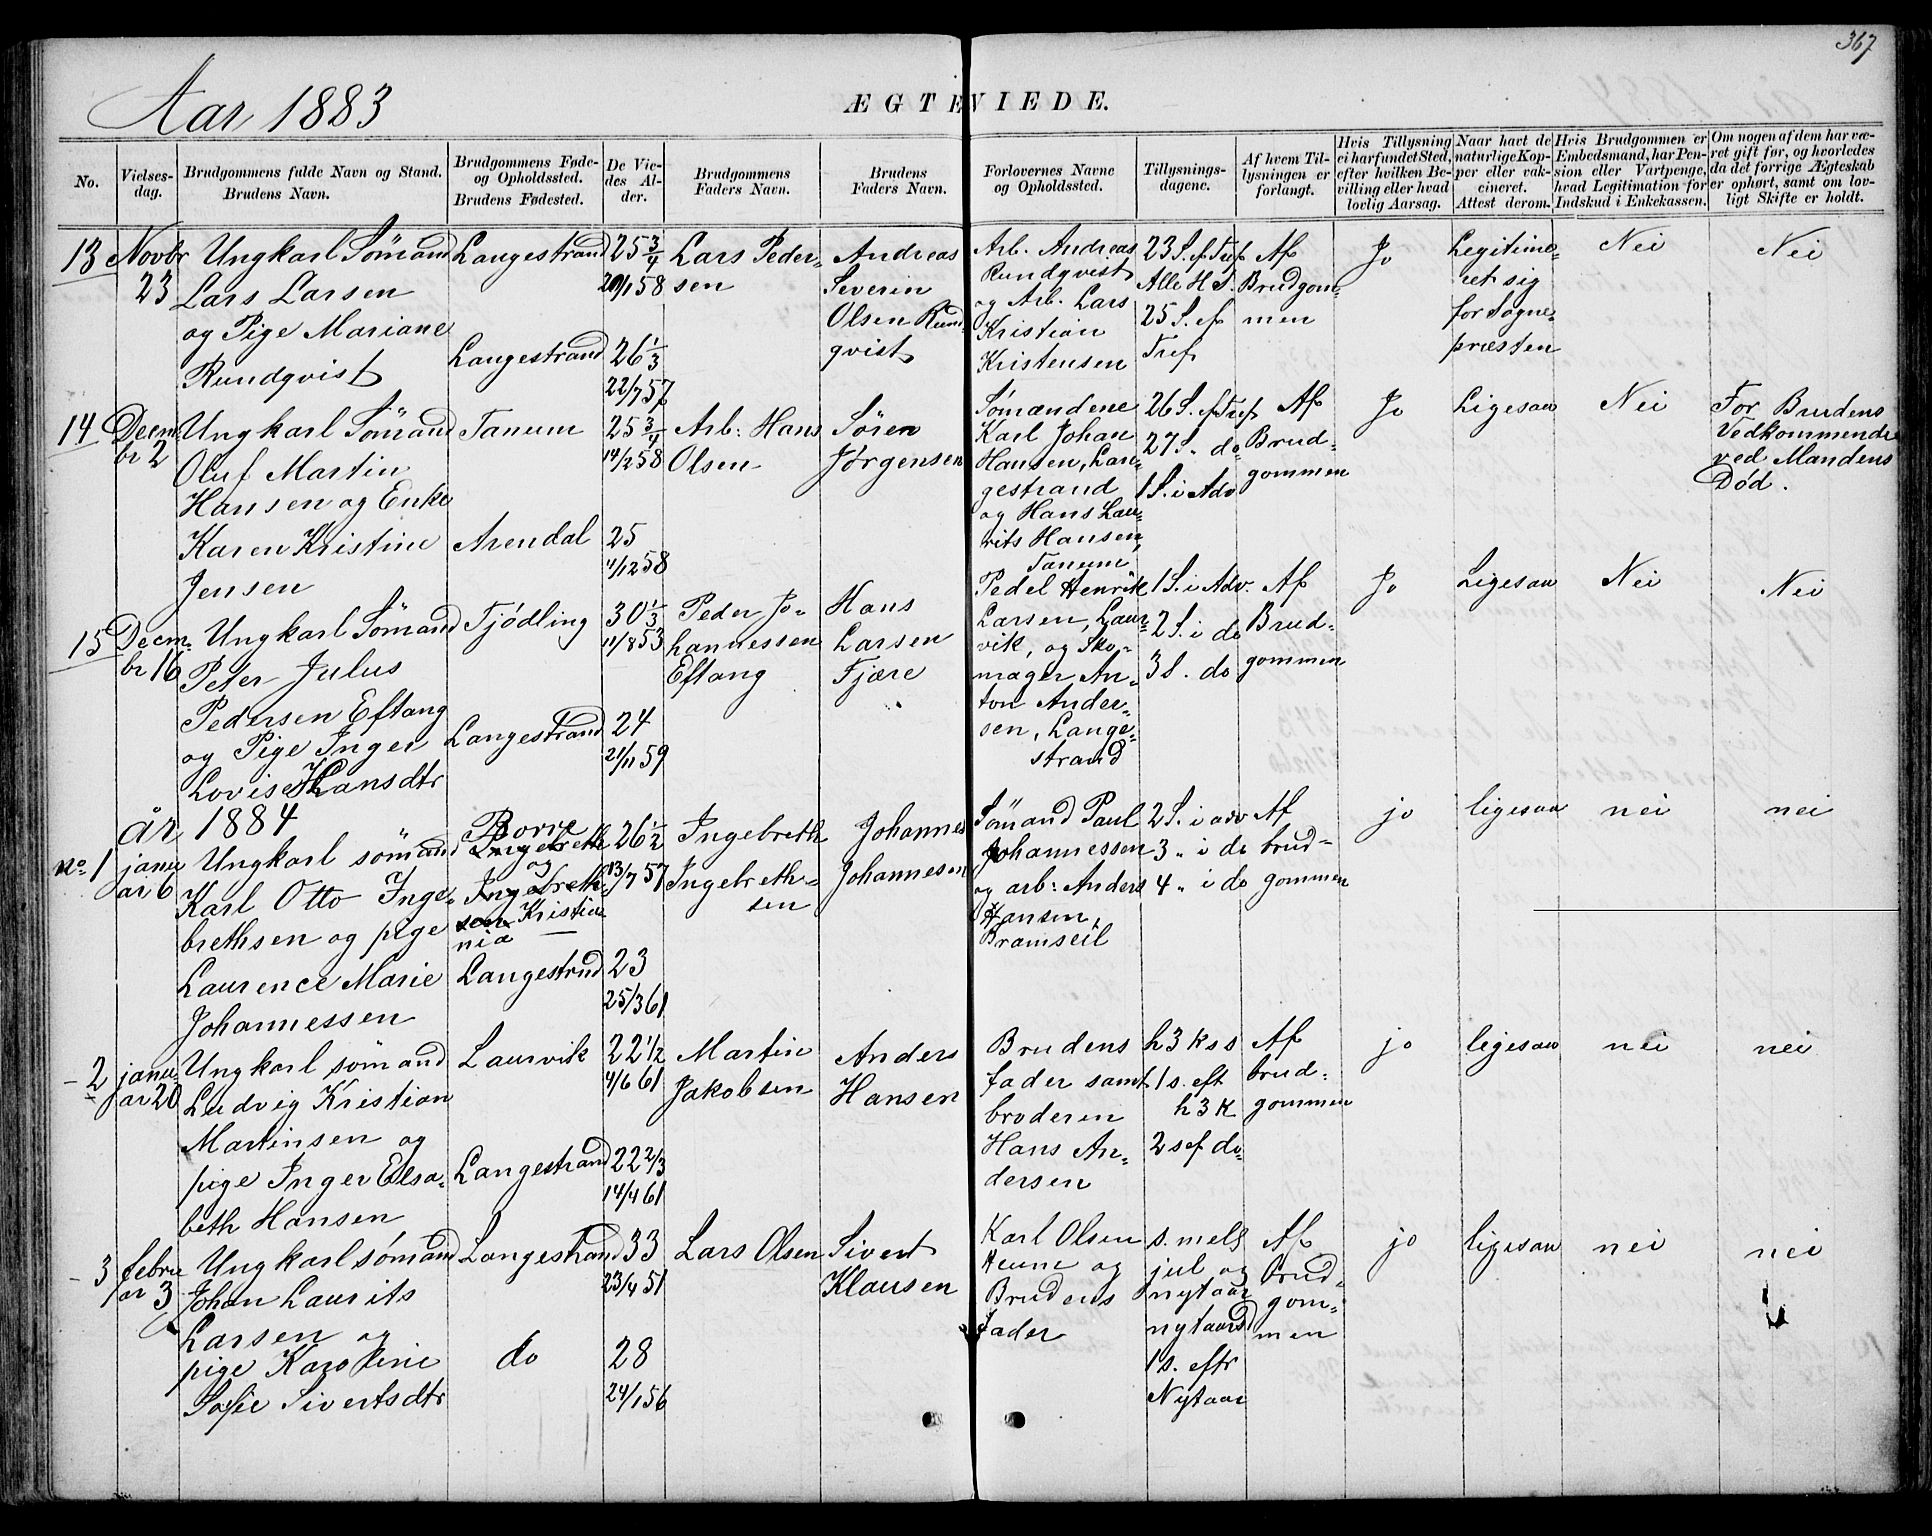 367
Aar 1883
ÆGTEVIEDE.
No.
Vielses-
dag.
Brudgommens fulde Navn og Stand.
Brudens Navn.
Brudgommens Føde-
og Opholdssted.
Brudens Fødested.
De Vie-
des Al-
der.
Brudgommens
Faders Navn.
Brudens
Faders Navn.
Forlovernes Navne
og Opholdssted.
Tillysnings-
dagene.
Af hvem Til-
lysningen er
forlangt.
Hvis Tillysning
ei har fundet Sted,
efter hvilken Be-
villing eller hvad
lovlig Aarsag.
Naar havt de
naturlige Kop-
per eller vak-
cineret.
Attest derom.
Hvis Brudgommen er
Embedsmand, har Pen-
sion eller Vartpenge,
hvad Legitimation for
Indskud i Enkekassen.
Om nogen af dem har væ-
ret gift før, og hvorledes
da det forrige Ægteskab
er ophørt, samt om lov-
ligt Skifte er holdt.
13
Novbr
23
Ungkarl Sømand
Lars Larsen
og Pige Mariane
Rundqvist
Langestrand
Langestrand
25 3/4
20/1 58
26 1/3
22/7 57
Lars Peder-
sen
Andreas
Severin
Olsen Rund-
qvist
Arb. Andreas
Rundqvist
og Arb. Lars
Kristian
Kristensen
23 S. ef. Tref
Alle H S.
25 S. ef
Tref
Af
Brudgom-
men
Jo
Legitime-
ret sig
for Sogne-
præsten
Nei
Nei
14
Decm-
br 2
Ungkarl Sømand
Oluf Martin
Hansen og Enke
Karen Kristine
Jensen
Tanum
Arendal
25 3/4
14/2 58
25
4/12 58
Arb: Hans
Olsen
Søren
Jørgensen
Sømændene
Karl Johan
Hansen, Lan-
gestrand
og Hans Lau-
rits Hansen,
Tanum
26 S. ef Tref
27 S. do
1 S. i Adv
Af
Brud-
gommen
Jo
Ligesaa
Nei
For Brudens
Vedkommende
ved Mandens
Død.
15
Decm-
br 16
Ungkarl Sømand
Peter Julus
Pedersen Eftang
og Pige Inger
Lovise Hansdtr
Tjødling
Langestrand
30 1/3
11/8 53
24
21/11 59
Peder Jo-
hannessen
Eftang
Hans
Larsen
Fjære
Pedel Henrik
Larsen, Laur-
vik, og Sko-
mager An-
ton Ander-
sen, Lange-
strand
1 S. i Adv.
2 S. i do
3 S. do
Af
Brud-
gommen
Jo
Ligesaa
Nei
Nei
år 1884
no. 1
janu
ar 6
Ungkarl sømand
Karl Otto Inge-
brethsen og pige
Laurence Marie
Johannessen
Borre
Ingebreth
og
Ingebreth-
sen Kristia
nia
Langestrnd
26 1/2
13/7 57
23
25/3 61
Ingebreth
Ingebreth-
sen
Johannes
Johannesen
Sømand Paul
Johannessen
og arb: Anders
Hansen,
Bramseil
2 S. i adv
3 „ i do
4 „ i do
Af
brud-
gommen
jo
ligesaa
nei
nei
- 2
janu
ar 20
Ungkarl sømand
Ludvig Kristian
Martinsen og
pige Inger Elsa-
beth Hansen
Laurvik
Langestrand
22 1/2
4/6 61
22 2/3
14/4 61
Martin
Jakobsen
Anders
Hansen
Brudens
fader samt
broderen
Hans An-
dersen
h 3 k s s
1 s. eft
h 3 K
2 s ef do
Af
brud-
gommen
jo
ligesaa
nei
nei
- 3
febru
ar 3
Ungkarl sømand
Johan Laurits
Larsen og
pige Karoline
Sofie Sivertsdtr
Langestrand
do
33
23/4 51
28
24/1 56
Lars Olsen
Sivert
Klausen
Karl Olsen
og
Brudens
fader
s. mell
jul og
nytaar
nytaarsd
1 s. eftr
Nytaar
Af
brud-
gom-
men
jo
ligesaa
nei
nei